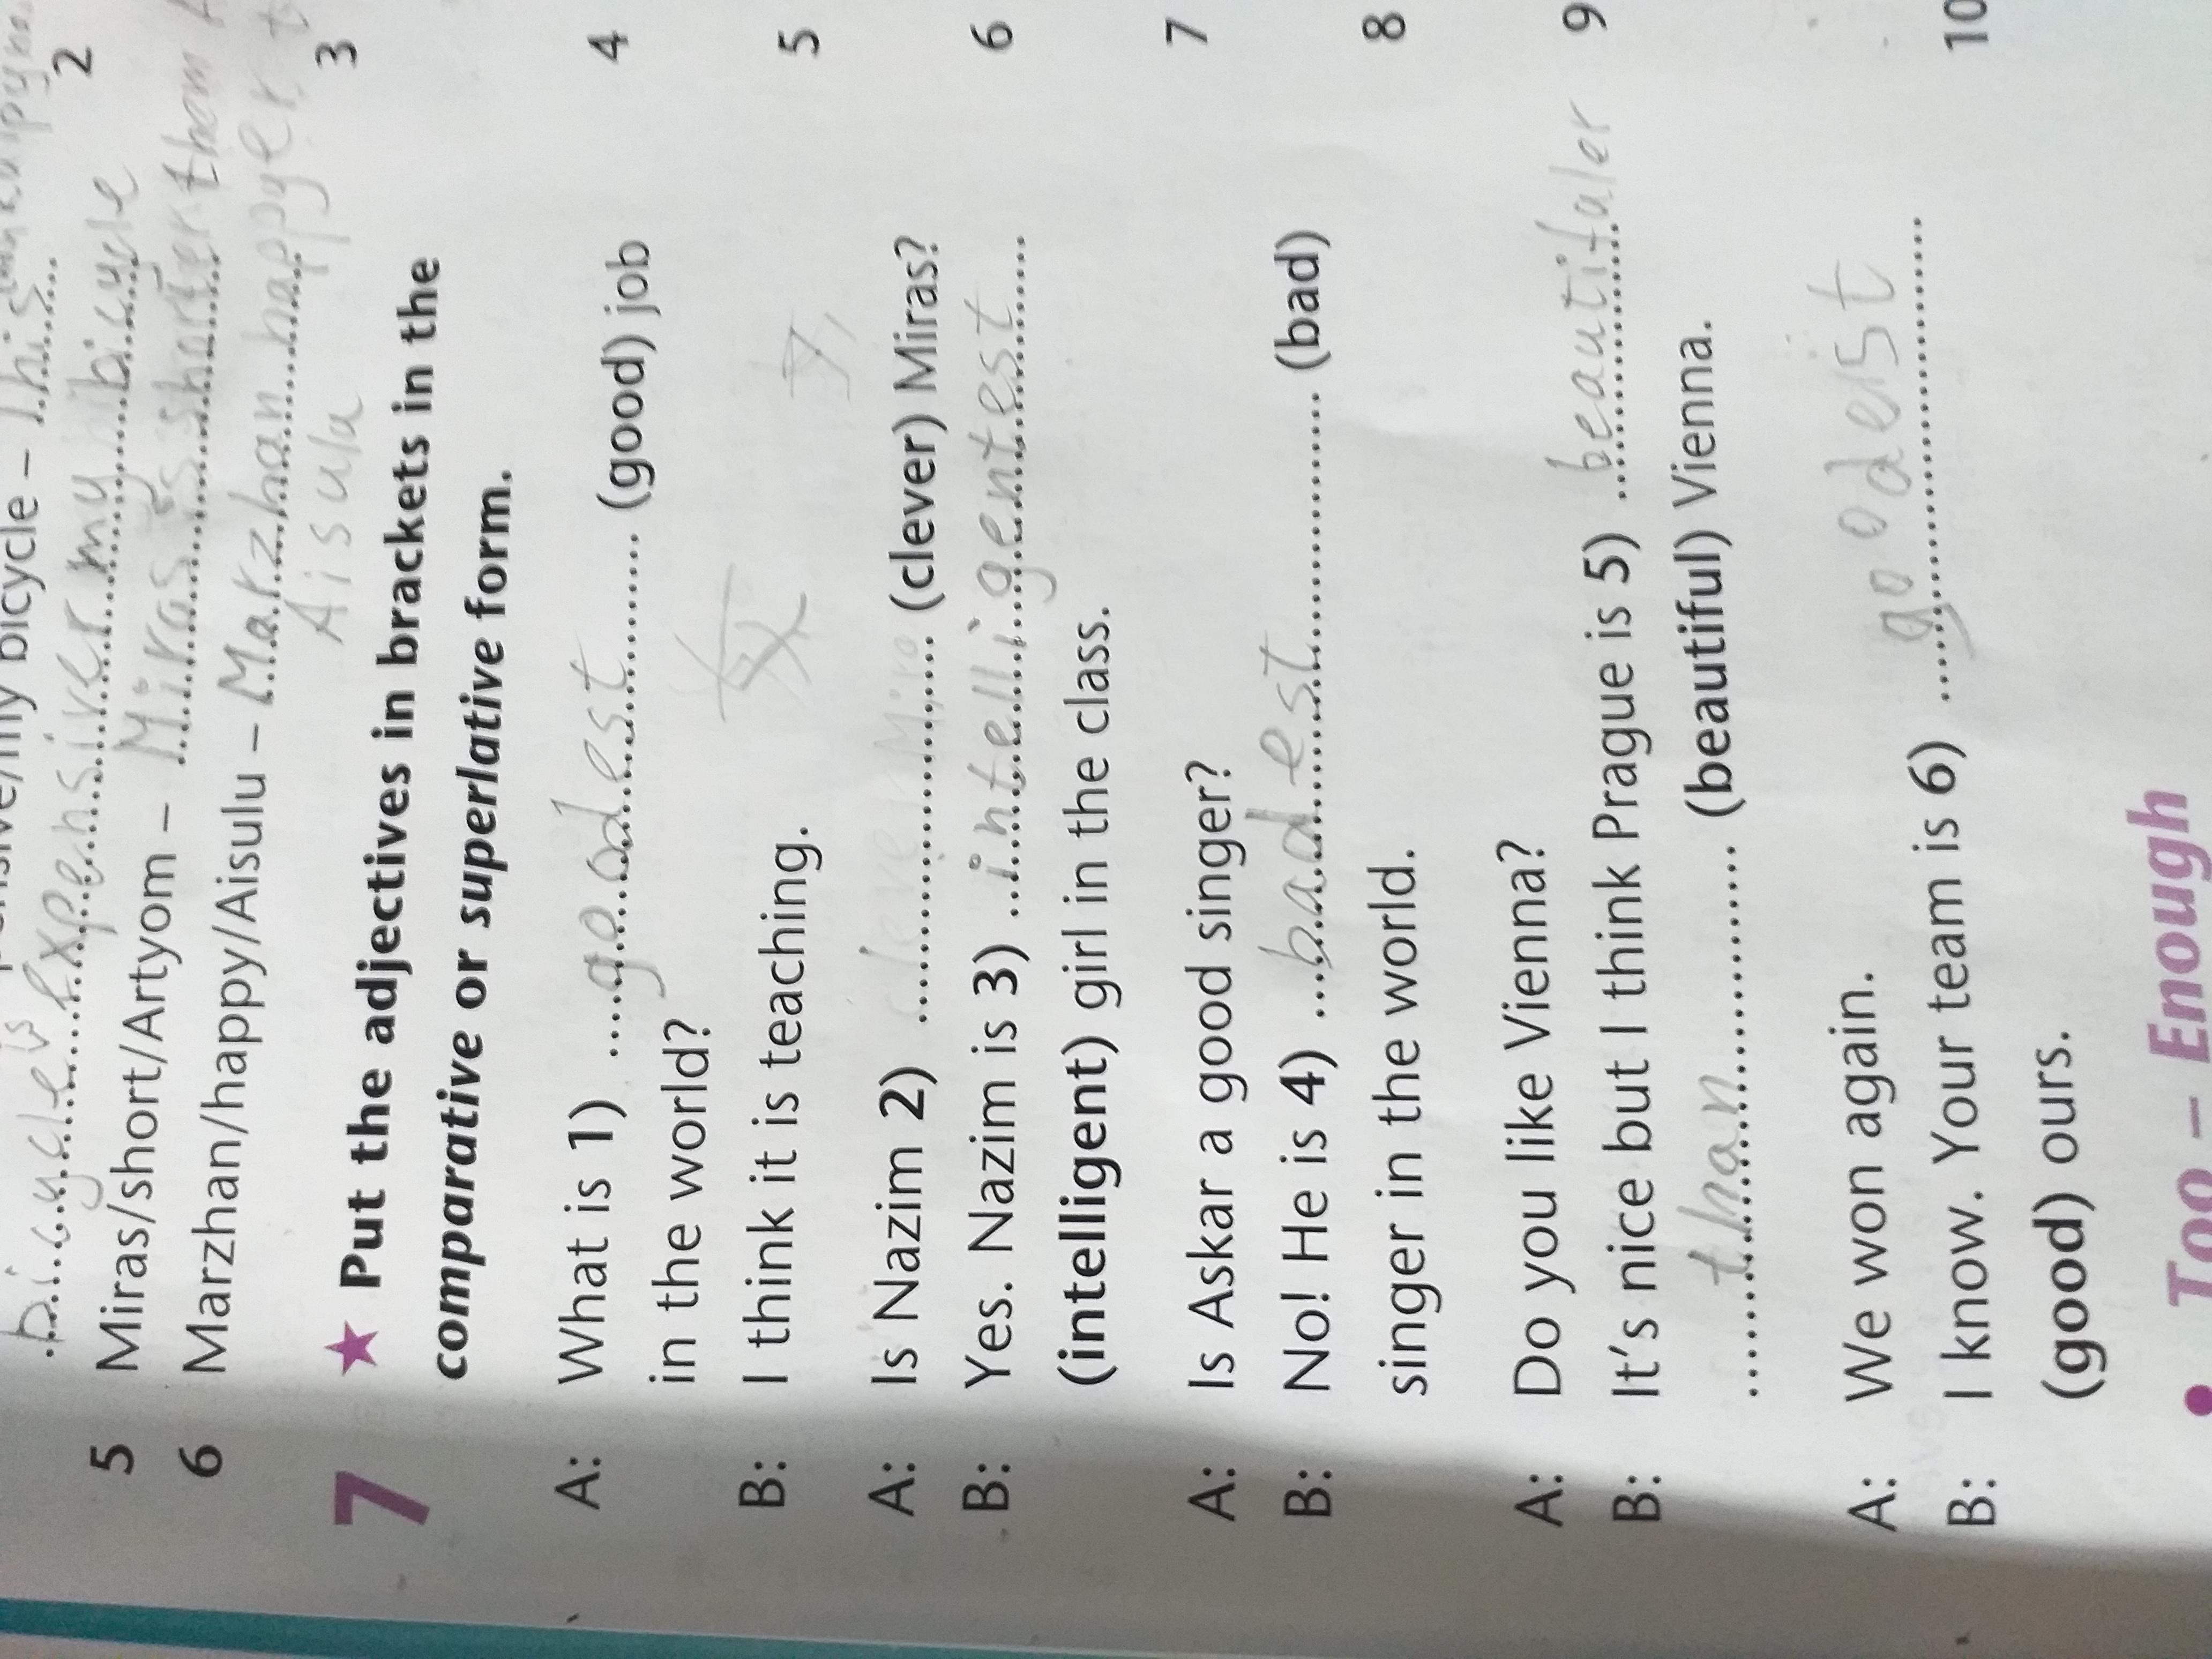 bicycle –
bicycle is expensiver my bicycle
5 Miras/short/Artyom – Miras shorter
6 Marzhan/happy/Aisulu – Marzhan happyer
Aisula
7 ★ Put the adjectives in brackets in the
comparative or superlative form.
A: What is 1) goodest (good) job
in the world?
B: I think it is teaching.
A: Is Nazim 2) (clever) Miras?
B: Yes. Nazim is 3) intelligentest
(intelligent) girl in the class.
A: Is Askar a good singer?
B: No! He is 4) badest (bad)
singer in the world.
A: Do you like Vienna?
B: It's nice but I think Prague is 5) beautifaler
than (beautiful) Vienna.
A: We won again.
B: I know. Your team is 6) goodeist
(good) ours.
• Too – Enough
2
3
4
5
6
7
8
9
10